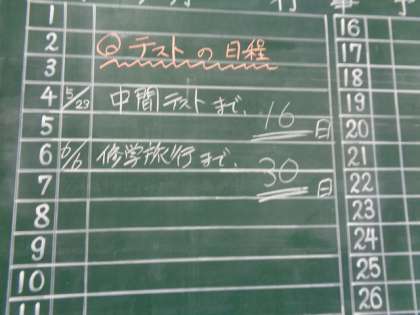 月 行 事 予
1
2 Ⓠ テストの日程
3
4 5/29 中間テストまで、16日
5
6 修学旅行まで、30日
7
8
9
10
11
16
17
18
19
20
21
22
23
24
25
26